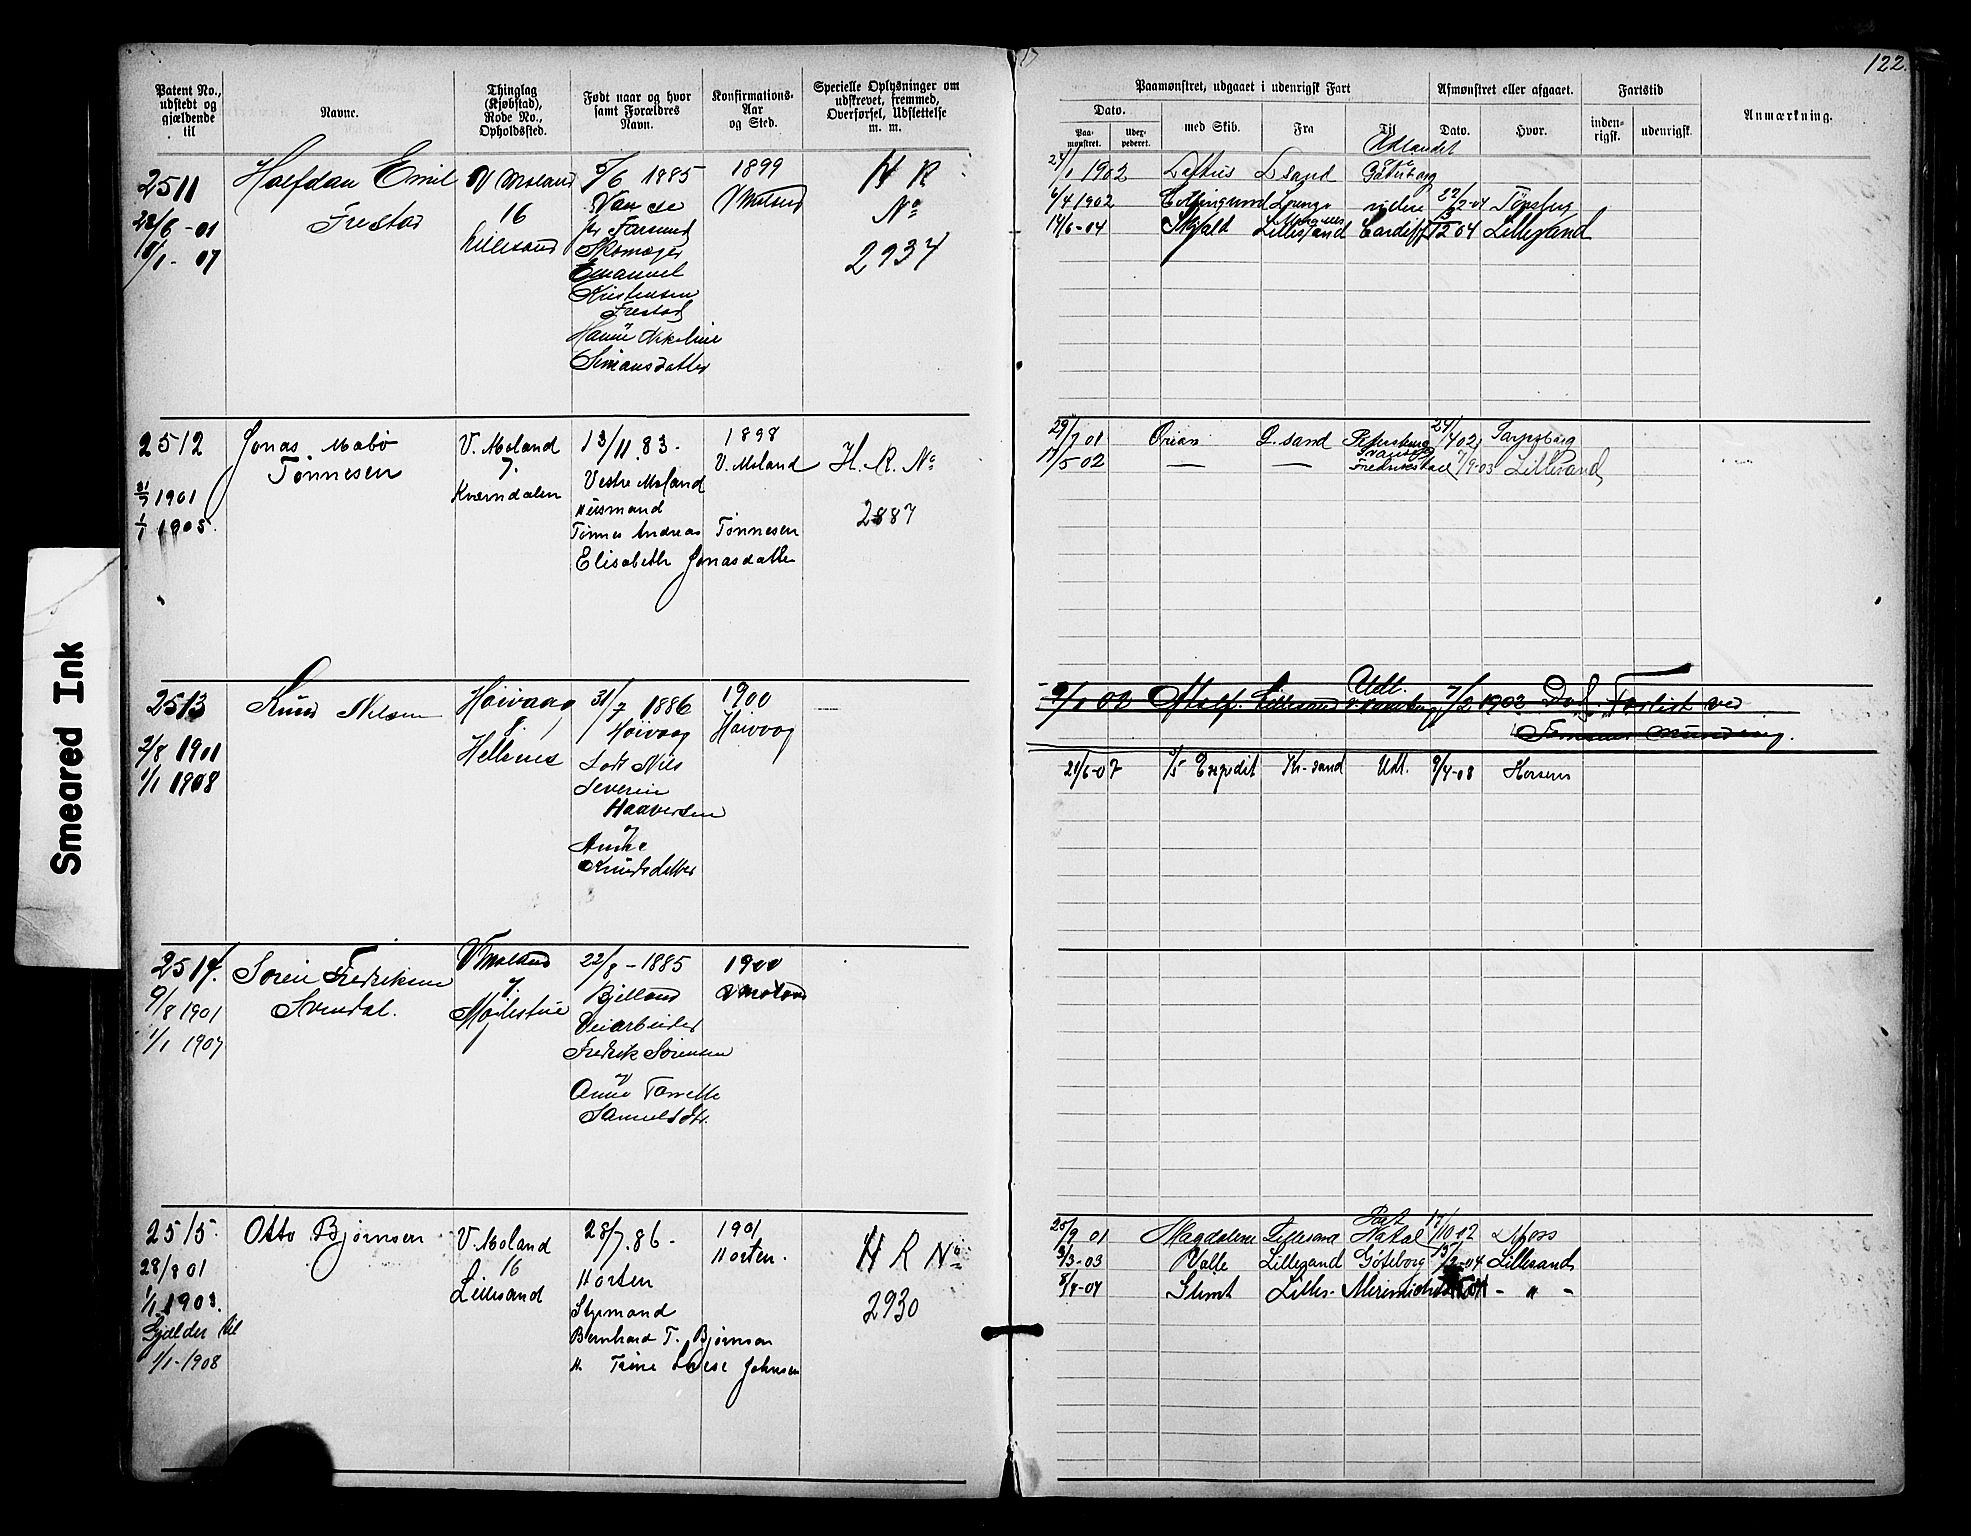 122.
Patent No., udstedt og gjældende til
Navne.
Thinglag (Kjøbstad), Rode No., Opholdssted.
Født naar og hvor samt Forældres Navn.
Konfirmations-Aar og Sted.
Specielle Oplysninger om udskrevet, fremmed, Overførsel, Udslettelse m. m.
Paamønstret, udgaaet i udenrigsk Fart
Dato.
Paa-mønstret.
Uder-pederet.
med Skib.
Fra
Til
Afmønstret eller afgaaet.
Dato.
Hvor.
Fartstid
inden-rigsk.
udenrigsk.
Anmærkning.
2511
28/6 - 01
1/1 - 07
Halfdan Emil
Frestad
V Moland
16
Lillesand
5/6 1885
Vanse
pr Farsund
Skomager
Emanuel
Kristensen
Frestad
Hanne Nikoline
Simonsdatter
1899
V Moland
H R
No
2934
Udlandet
24/1 1902 L sand Gøteborg
6/4 1902 videre 22/2-04 Tønsberg
14/6-04 Skjold Lillesand Cardiff 04 Lillesand
2512
31/7 1901
1/1 1905.
Jonas Mabø
Tönnesen
V. Moland
7.
Kværndalen
13/11 83.
Vestre Moland
Huusmand
Tönnes Andreas Tönnesen
Elisabeth Jonasdatter
1898
V. Moland
H. R. No
2887
29/7 01 Orion L. sand Petersburg 24/4 02 Sarpsborg
17/5 02 — — Fredrikstad 7/9-03 Lillesand
2513
2/8 1901
1/1 1908
Knud Nilsen
Høivaag
8
Hellesnes
31/7 1886
Høivaag
Lods Nils
Severin
Haaversen
og
Knudsdatter
1900
Høivaag
—
Udl.
9/1 02 Lillesand 7/2 1903 Forlist ved
21/6-07 S/S Expedit Kr-sand Udl. 9/4-08 Horsens
2514.
9/8 1901
1/1 1907
Søren Fredriksen
Svendal.
V Moland
7.
22/8 - 1885
Bjelland
Veiarbeider
Fredrik Sørensen
og
Anne Tomette
Samuelsdtr.
1900
V Moland
2515.
28/8 01
1/1 1903.
Gjælder til
1/1-1908
Otto Bjørnsen
V. Moland
16
Lillesand
28/7. 86 -
Horten
Styrmand
Bernhard T. Bjørnsen
H. Trine Lovise Johnsen
1901
Horten.
H R No
2930
Port
20/9 01 Magdalene Lillesand Natal 17/10 02 Moss
3/3-03 Valle Lillesand Göteborg 15/2-04 Lillesand
8/4-04 Lilles- - " -
Smeared Ink